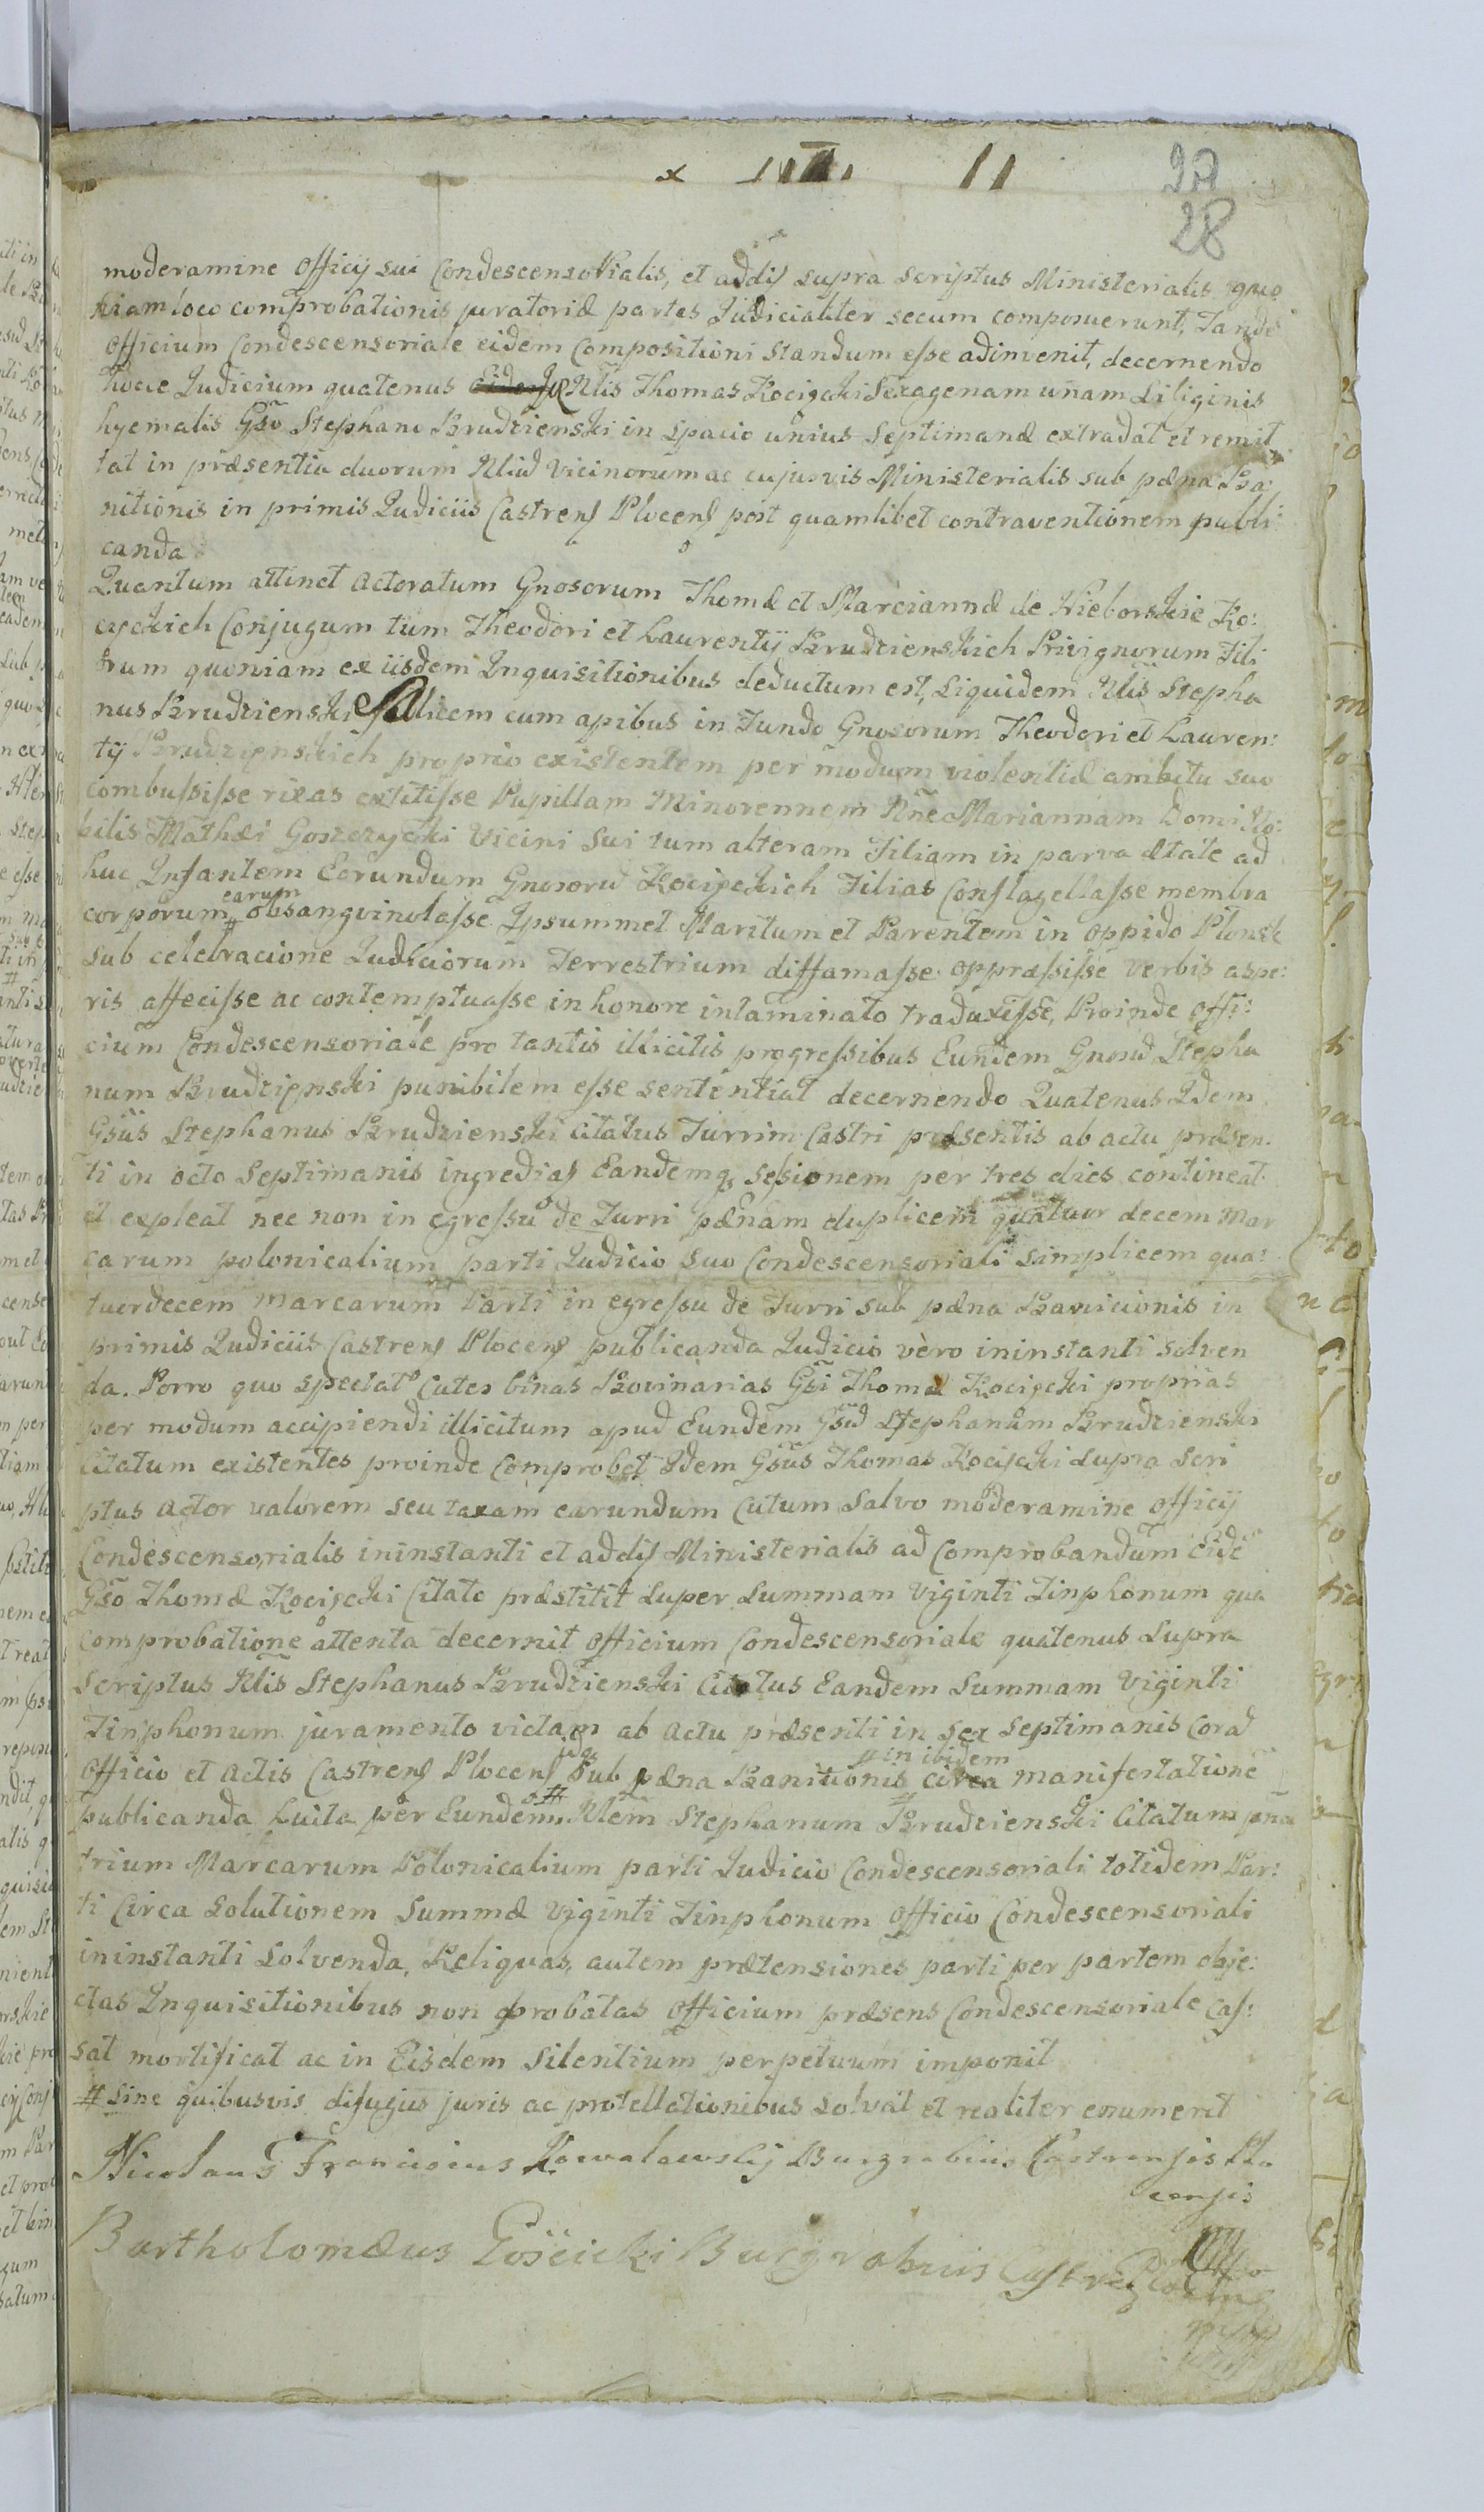 x 11
27
28
moderamine Officij sui Condescensorialis, et addis supra scriptus Ministerialis quo
niam loco comprobationis juratoriæ partes Judicialiter secum composuerunt, Tande
Officium Condescensoriale eidem Compositioni standum esse adinvenit, decernendo
hocce Judicium quatenus Nlis Thomas Kocięcki Sexagenam unam Siliginis
hyemalis Gso Stephano Brudzienski in spacio unius Septimanæ extradat et remit
tat in præsentia duorum Nliu Vicinorum ac cujusvis Ministerialis sub pæna Ba:
nitionis in primis Judiciis Castrens Plocens post quamlibet contraventionem publi:
canda
Quantum attinet actoratum Gnosorum Thomæ et Mariannæ de Nieborskie Ko:
cięckich Conjugum tum Theodori et Laurentij Brudzienskich Privignorum Fili
trum quoniam ex iisdem Inquisitionibus deductum est, siquidem Nlis Stepha
nus Brudzienski Salicem cum apibus in Fundo Gnosorum Theodori et Lauren:
tij Brudzięnskich proprio existentem per modum violentiæ ambitu suo
combussisse rixas extitisse Pupillam Minorennem Nne Mariannam Domi No:
bilis Mathæi Goszczycki Vicini sui tum alteram Filiam in parva ætate ad
huc Infantem Eorundum Gnosoru Kocięckich Filias Conflagellasse membra
corporum # earum obsangvinolasse Ipsummet Maritum et Parentem in oppido Plonsk
sub celebracione Judiciorum Terrestrium diffamasse oppræssisse verbis aspe:
ris affecisse ac contemptuasse in honore intaminato traduxisse, Proinde Offi:
cium Condescensoriale pro tantis illicitis progressibus Eundem Gnosu Stepha
num Brudzięnski punibilem esse sententiat decernendo Quatenus Idem
Gsus Stephanus Brudzienski Citatus Turrim Castri præsentis ab actu præsen:
ti in octo Septimanis ingredias Eandemq sessionem per tres dies contineat
et expleat nec non in egressu de Turri pænam duplicem quatuor decem Mar
carum polonicalium parti Judicio suo Condescensoriali simplicem qua:
tuordecem Marcarum Parti in egressu de Turri sub pæna Banicionis in
primis Judiciis Castrens Plocens publicanda Judicio vero ininstanti solven
da. Porro quo spectat Cutes binas Bovinarias Gsi Thomæ Kocięcki proprias
per modum accipiendi illicitum apud Eundem Gsu Stephanum Brudzienski
Citatum existentes proinde comprobet Idem Gsus Thomas Kocięcki supra scri
ptus actor valorem seu taxam earundum Cutum salvo moderamine Officij
Condescensorialis ininstanti et addis Ministerialis ad Comprobandum Eide
Gso Thomæ Kocięcki Citato præstitit super Summam Viginti Tinphonum qua
comprobatione attenta decernit Officium Condescensoriale quatenus supra
scriptus Nlis Stephanus Brudzienski Citatus Eandem Summam Viginti
Tinphonum juramento victam ab actu præsenti in sex septimanis Cora
Officio et Actis Castrens Plocens sub pæna Banitionis # in ibidem circa manifestatione
publicanda luita per Eundem Nlem Stephanum Brudzienski Citatum pæna
trium Marcarum Polonicalium parti Judicio Condescensoriali totidem Par:
ti Circa solutionem Summæ Viginti Tinphonum Officio Condescensoriali
ininstanti solvenda, Reliquas autem prætensiones parti per partem obje:
ctas Inquisitionibus non probatas Officium præsens Condescensoriale cas:
sat mortificat ac in Eisdem Silentium perpetuum imponit
# sine quibusvis difugiis juris ac protellationibus solvat et realiter enumeret
Nicolaus Franciscus Kowalewskij Burgrabius Castrensis Plo
censis
Bartholomæus Gościcki Burgrabius